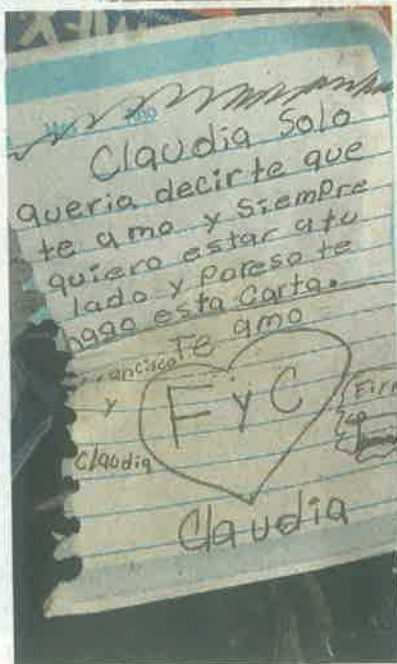 Claudia Solo
queria decirte que
te amo y Siempre
quiero estar a tu
lado y Poreso te
hago esta Carta.
Te amo
Francisco
y
Claudia
F y C
Claudia